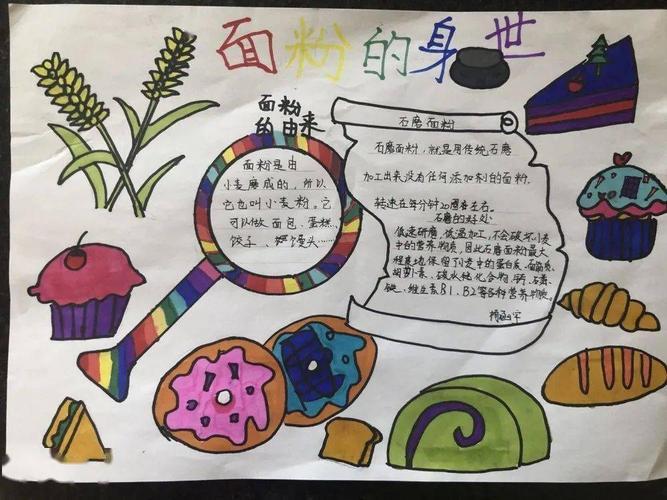 面粉的身世
面粉
的由来
面粉是由
小麦磨成的，所以
它也叫小麦粉。它
可以做面包、蛋糕…
饺子、馒头……
石磨面粉
石磨面粉，就是用传统石磨
加工出来没有任何添加剂的面粉.
转速在每分钟20磨者左右。
石磨的好处
低速研磨，低温加工，不会破坏小麦
中的营养物质，因此石磨面粉最大
程度地保留了小麦中的蛋白质、面筋质、
胡萝卜素、碳水化合物、钙、
维生素B1、B2等各种营养物质。